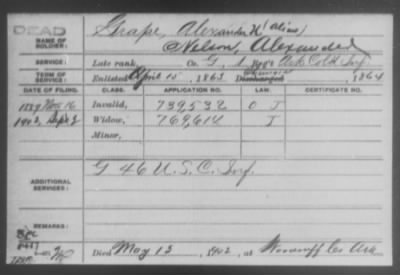 DEAD
NAME OF SOLDIER: Grape, Alexander N (alias)
Nelson, Alexander
SERVICE: Late rank, Co. G, 1 Reg't Ark Cold Inf.
TERM OF SERVICE: Enlisted April 15, 1863 Discharged, 1864
DATE OF FILING. CLASS. APPLICATION NO. LAW. CERTIFICATE NO.
1889 Nov 16 Invalid, 739,532 O J
1902, Sep 2 Widow, 769,614 J
Minor,
ADDITIONAL SERVICES: G 46 U. S. C. Inf.
REMARKS:
Died May 13, 1902, at Woodruff Co Ark.